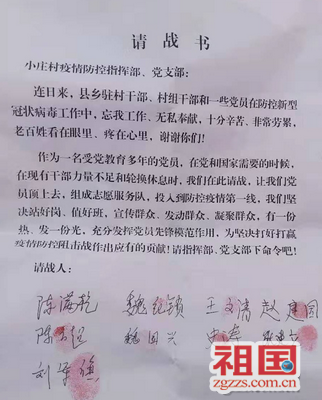 请 战 书
小庄村疫情防控指挥部、党支部：
连日来，县乡驻村干部、村组干部和一些党员在防控新型
冠状病毒工作中，忘我工作、无私奉献，十分辛苦、非常劳累，
老百姓看在眼里、疼在心里，谢谢你们！
作为一名受党教育多年的党员，在党和国家需要的时候，
在现有干部力量不足和轮换休息时，我们在此请战，让我们党
员顶上去，组成志愿服务队，投入到防控疫情第一线，我们坚
决站好岗、值好班，宣传群众、发动群众、凝聚群众，有一份
热、发一份光，充分发挥党员先锋模范作用，为坚决打好打赢
疫情防控阻击战作出应有的贡献！请指挥部、党支部下命令吧！
请战人：
陈满乾 魏纪锁 王文清 赵建国
魏国兴
祖国
zgzzs.com.cn